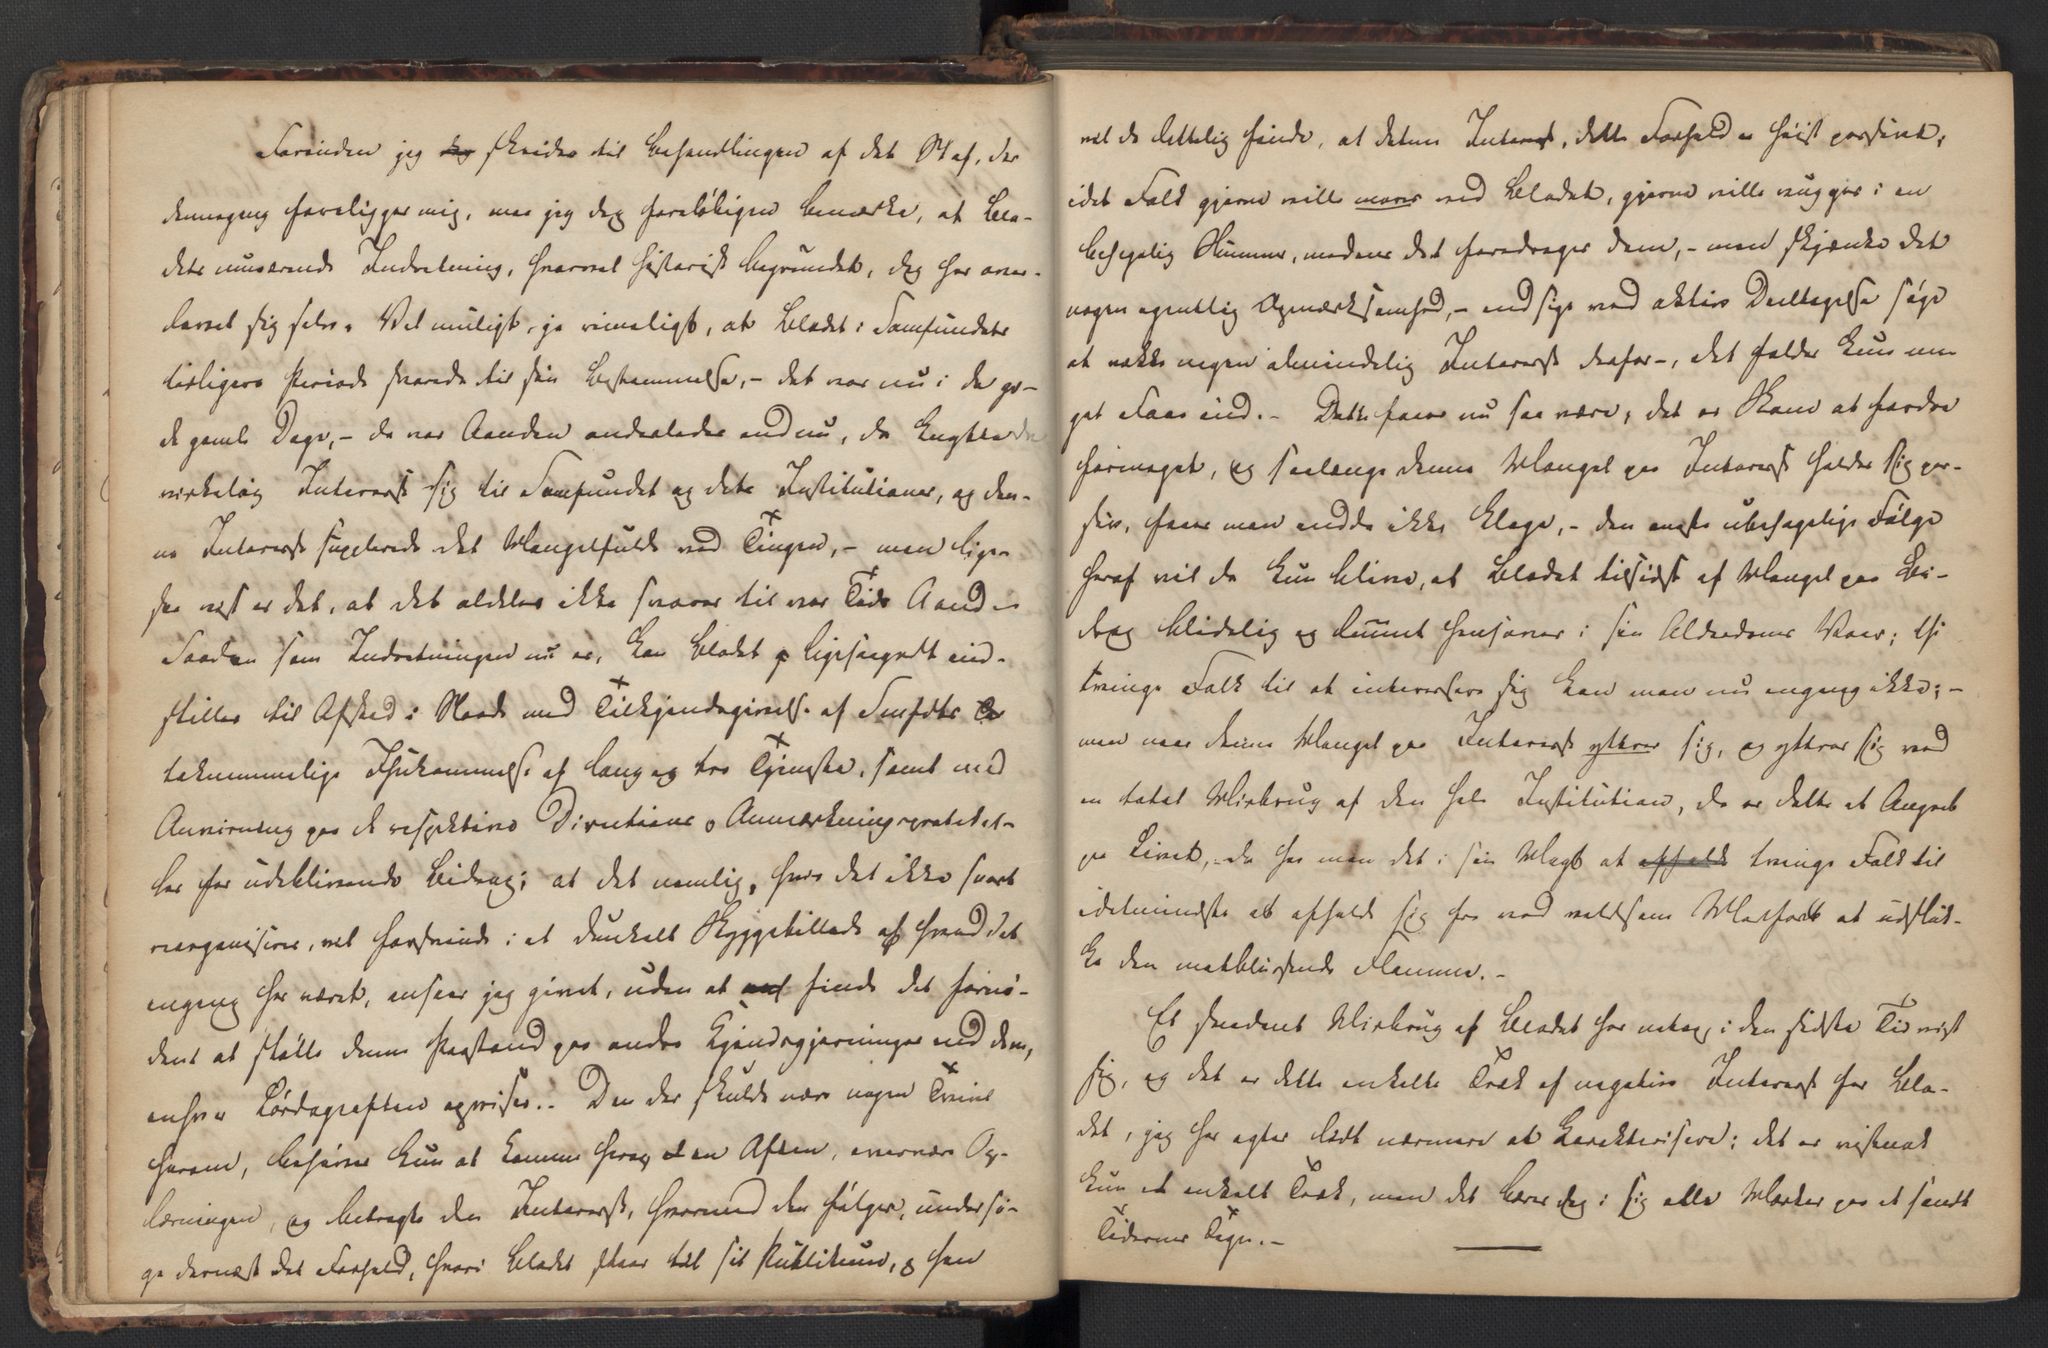 Forinden jeg skrider til Behandlingen af det Stof, der
dennegang foreligger mig, maa jeg dog foreløbigen bemærke, at Bla-
dets nuværende Indretning, hvorvel historisk begrundet, dog har over-
levet sig selv. Vel muligt, ja rimeligt, at Bladet i Samfundets
tidligere Periode svarede til sin Bestemmelse, – det var nu i de go-
de gamle Dage, – da var Aanden anderledes end nu, da knyttede der
virkelig Interesse sig til Samfundet og dets Institutioner, og den-
ne Interesse supplerede det Mangelfulde ved Tingen, – men lige
saa vist er det, at det aldeles ikke svarer til vor Tids Aand –
Saadan som Indretningen nu er, kan Bladet ligesaagodt ind-
stilles til Afsked i Naade med Tilkjendegivelse af Samfdts
taknemmelige Ihukommelse af lang og tro Tjeneste, samt med
Anvisning paa de respektive Directions o Anmærkningsprotokol-
ler for udeblivende Bidrag; at det nemlig, hvis det ikke snart
reorganiseres, vil forsvinde i et dunkelt Skyggebillede af hvad det
engang har været, anseer jeg givet, uden at finde det fornø-
dent at støtte denne Paastand paa andre Kjendsgjerninger end dem,
enhver Lørdagsaften opviser. – Den der skulde nære nogen Tvivl
herom, behøver kun at komme herop en Aften, overvære Op-
læsningen, og betragte den Interesse, hvormed den følges, undersø-
ge dernæst det Forhold, hvori Bladet staaer til sit Publikum, og han
vil da lettelig finde, at denne Interesse, dette Forhold er høist passivt,
idet Folk gjerne ville mores ved Bladet, gjerne ville vugges i en
behagelig Slummer, medens det foredrages dem, – men skjænke det
nogen egentlig Opmærksomhed, – endsige ved aktiv Deeltagelse søge
at vække nogen almindelig Interesse derfor –, det falder kun me-
get Faae ind. – Dette faaer nu saa være, det er Skam at fordre
formeget, og saalænge denne Mangel paa Interesse holder sig pas-
siv, faaer man endda ikke klage, – den eneste ubehagelige Følge
heraf vil da kun blive, at Bladet tilsidst af Mangel paa Bi-
drag blidelig og lunt hensover i sin Alderdoms Vaar; thi
tvinge Folk til at interessere sig kan man nu engang ikke; –
men naar denne Mangel paa Interesse yttrer sig, og yttrer sig ved
en total Misbrug af den hele Institution, da er dette et Angreb
paa Livet, – da har man det i sin Magt at tvinge Folk til
idetmindste at afholde sig fra ved voldsom Medfart at udsluk-
ke den matblussende Flamme. –
Et saadant Misbrug af Bladet har netop i den sidste Tid viist
sig, og det er dette enkelte Træk af negativ Interesse for Bla-
det, jeg her agter lidt nærmere at karakterisere; det er vistnok
kun et enkelt Træk, men det bærer dog i sig alle Mærker paa et sandt
Tidernes Tegn. –